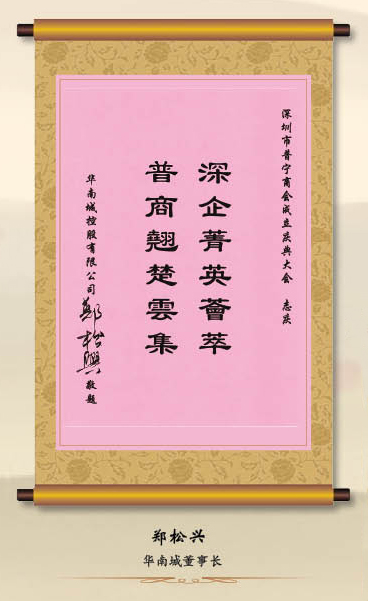 深圳市普宁商会成立庆典大会 志庆
深企菁英薈萃
普商翹楚雲集
华南城控股有限公司 鄭松興 敬题
郑松兴
华南城董事长